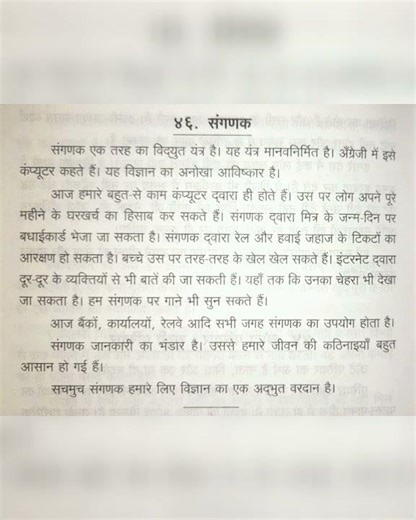 ४६. संगणक
संगणक एक तरह का विद्युत यंत्र है। यह यंत्र मानवनिर्मित है। अँग्रेजी में इसे
कंप्यूटर कहते हैं। यह विज्ञान का अनोखा आविष्कार है।
आज हमारे बहुत-से काम कंप्यूटर द्वारा ही होते हैं। उस पर लोग अपने पूरे
महीने के घरखर्च का हिसाब कर सकते हैं। संगणक द्वारा मित्र के जन्म-दिन पर
बधाईकार्ड भेजा जा सकता है। संगणक द्वारा रेल और हवाई जहाज के टिकटों का
आरक्षण हो सकता है। बच्चे उस पर तरह-तरह के खेल खेल सकते हैं। इंटरनेट द्वारा
दूर-दूर के व्यक्तियों से भी बातें की जा सकती हैं। यहाँ तक कि उनका चेहरा भी देखा
जा सकता है। हम संगणक पर गाने भी सुन सकते हैं।
आज बैंकों, कार्यालयों, रेलवे आदि सभी जगह संगणक का उपयोग होता है।
संगणक जानकारी का भंडार है। उससे हमारे जीवन की कठिनाइयाँ बहुत
आसान हो गई हैं।
सचमुच संगणक हमारे लिए विज्ञान का एक अद्भुत वरदान है।